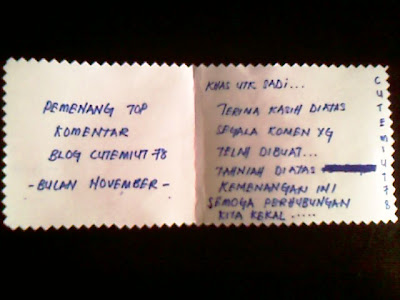 PEMENANG TOP
KOMENTAR
BLOG CUTEMIUT 78
-BULAN NOVEMBER-
KHAS UTK SADI...
TERIMA KASIH DIATAS
SEGALA KOMEN YG
TELAH DIBUAT...
TAHNIAH DIATAS
KEMENANGAN INI
SEMOGA PERHUBUNGAN
KITA KEKAL .....
CUTEMIUT78